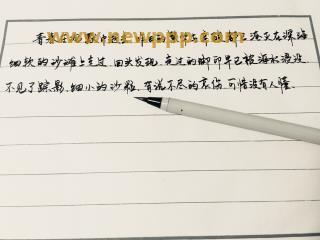 www.newppp.com
青春 淹灭在深海
细软的沙滩上走过，回头发现，走过的脚印早已被海水浸没
不见了踪影，细小的沙粒，有说不尽的哀伤，可惜没有人懂。